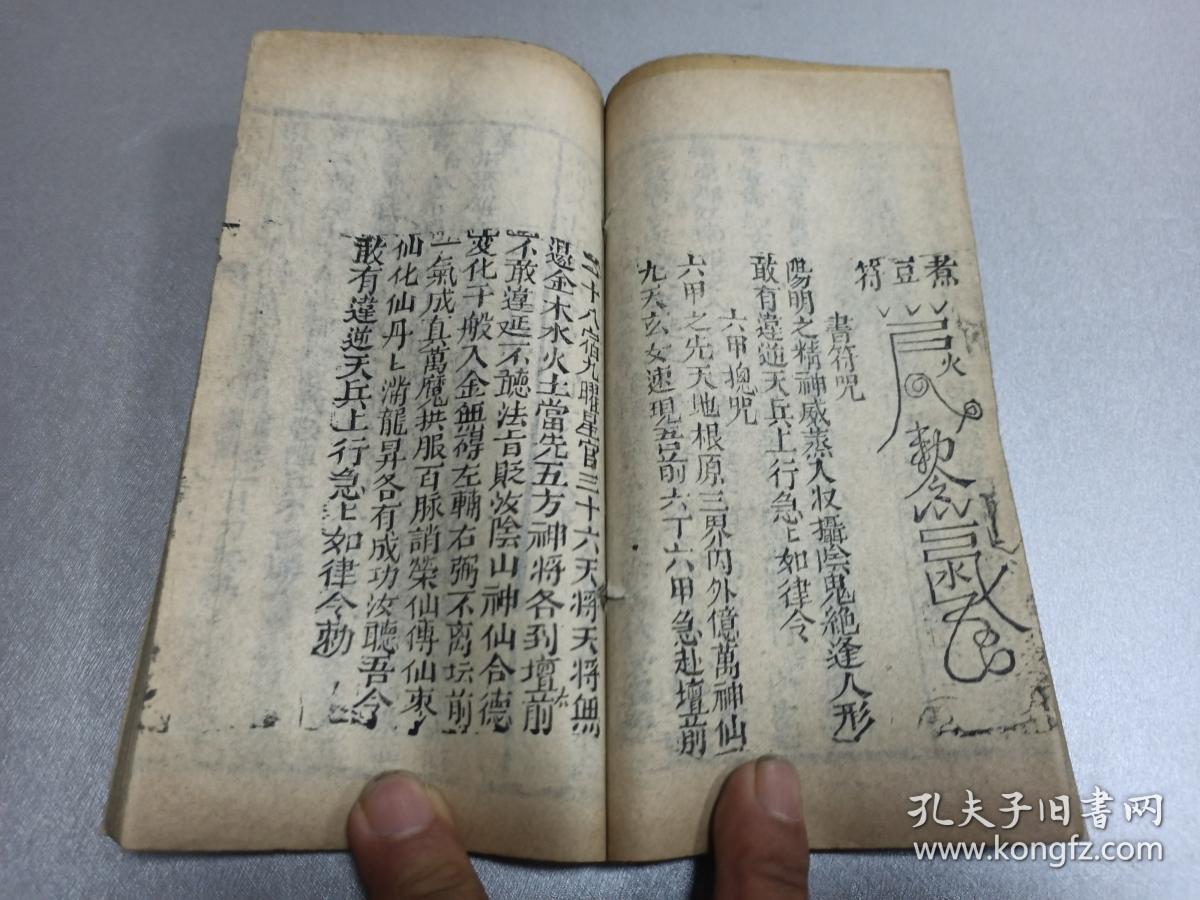 煮豆符
火
勅令
水
書符咒
陽明之精神威蒸人収攝陰鬼絶逢人形
敢有違逆天兵上行急〻如律令
六甲總咒
六甲之先天地根原三界內外億萬神仙
九天玄女速現吾前六丁六甲急赴壇前
二十八宿九曜星官三十六天將天將無
邊金木水火土當先五方神將各到壇前
不敢違延不聽法旨貶汝陰山神仙合德
変化千般入金無得左輔右弼不离坛前
一氣成真萬魔拱服百脉誚榮仙傳仙東
仙化仙丹〻満龍昇各有成功汝聽吾令
敢有違逆天兵上行急〻如律令勅
孔夫子旧書网
www.kongfz.com